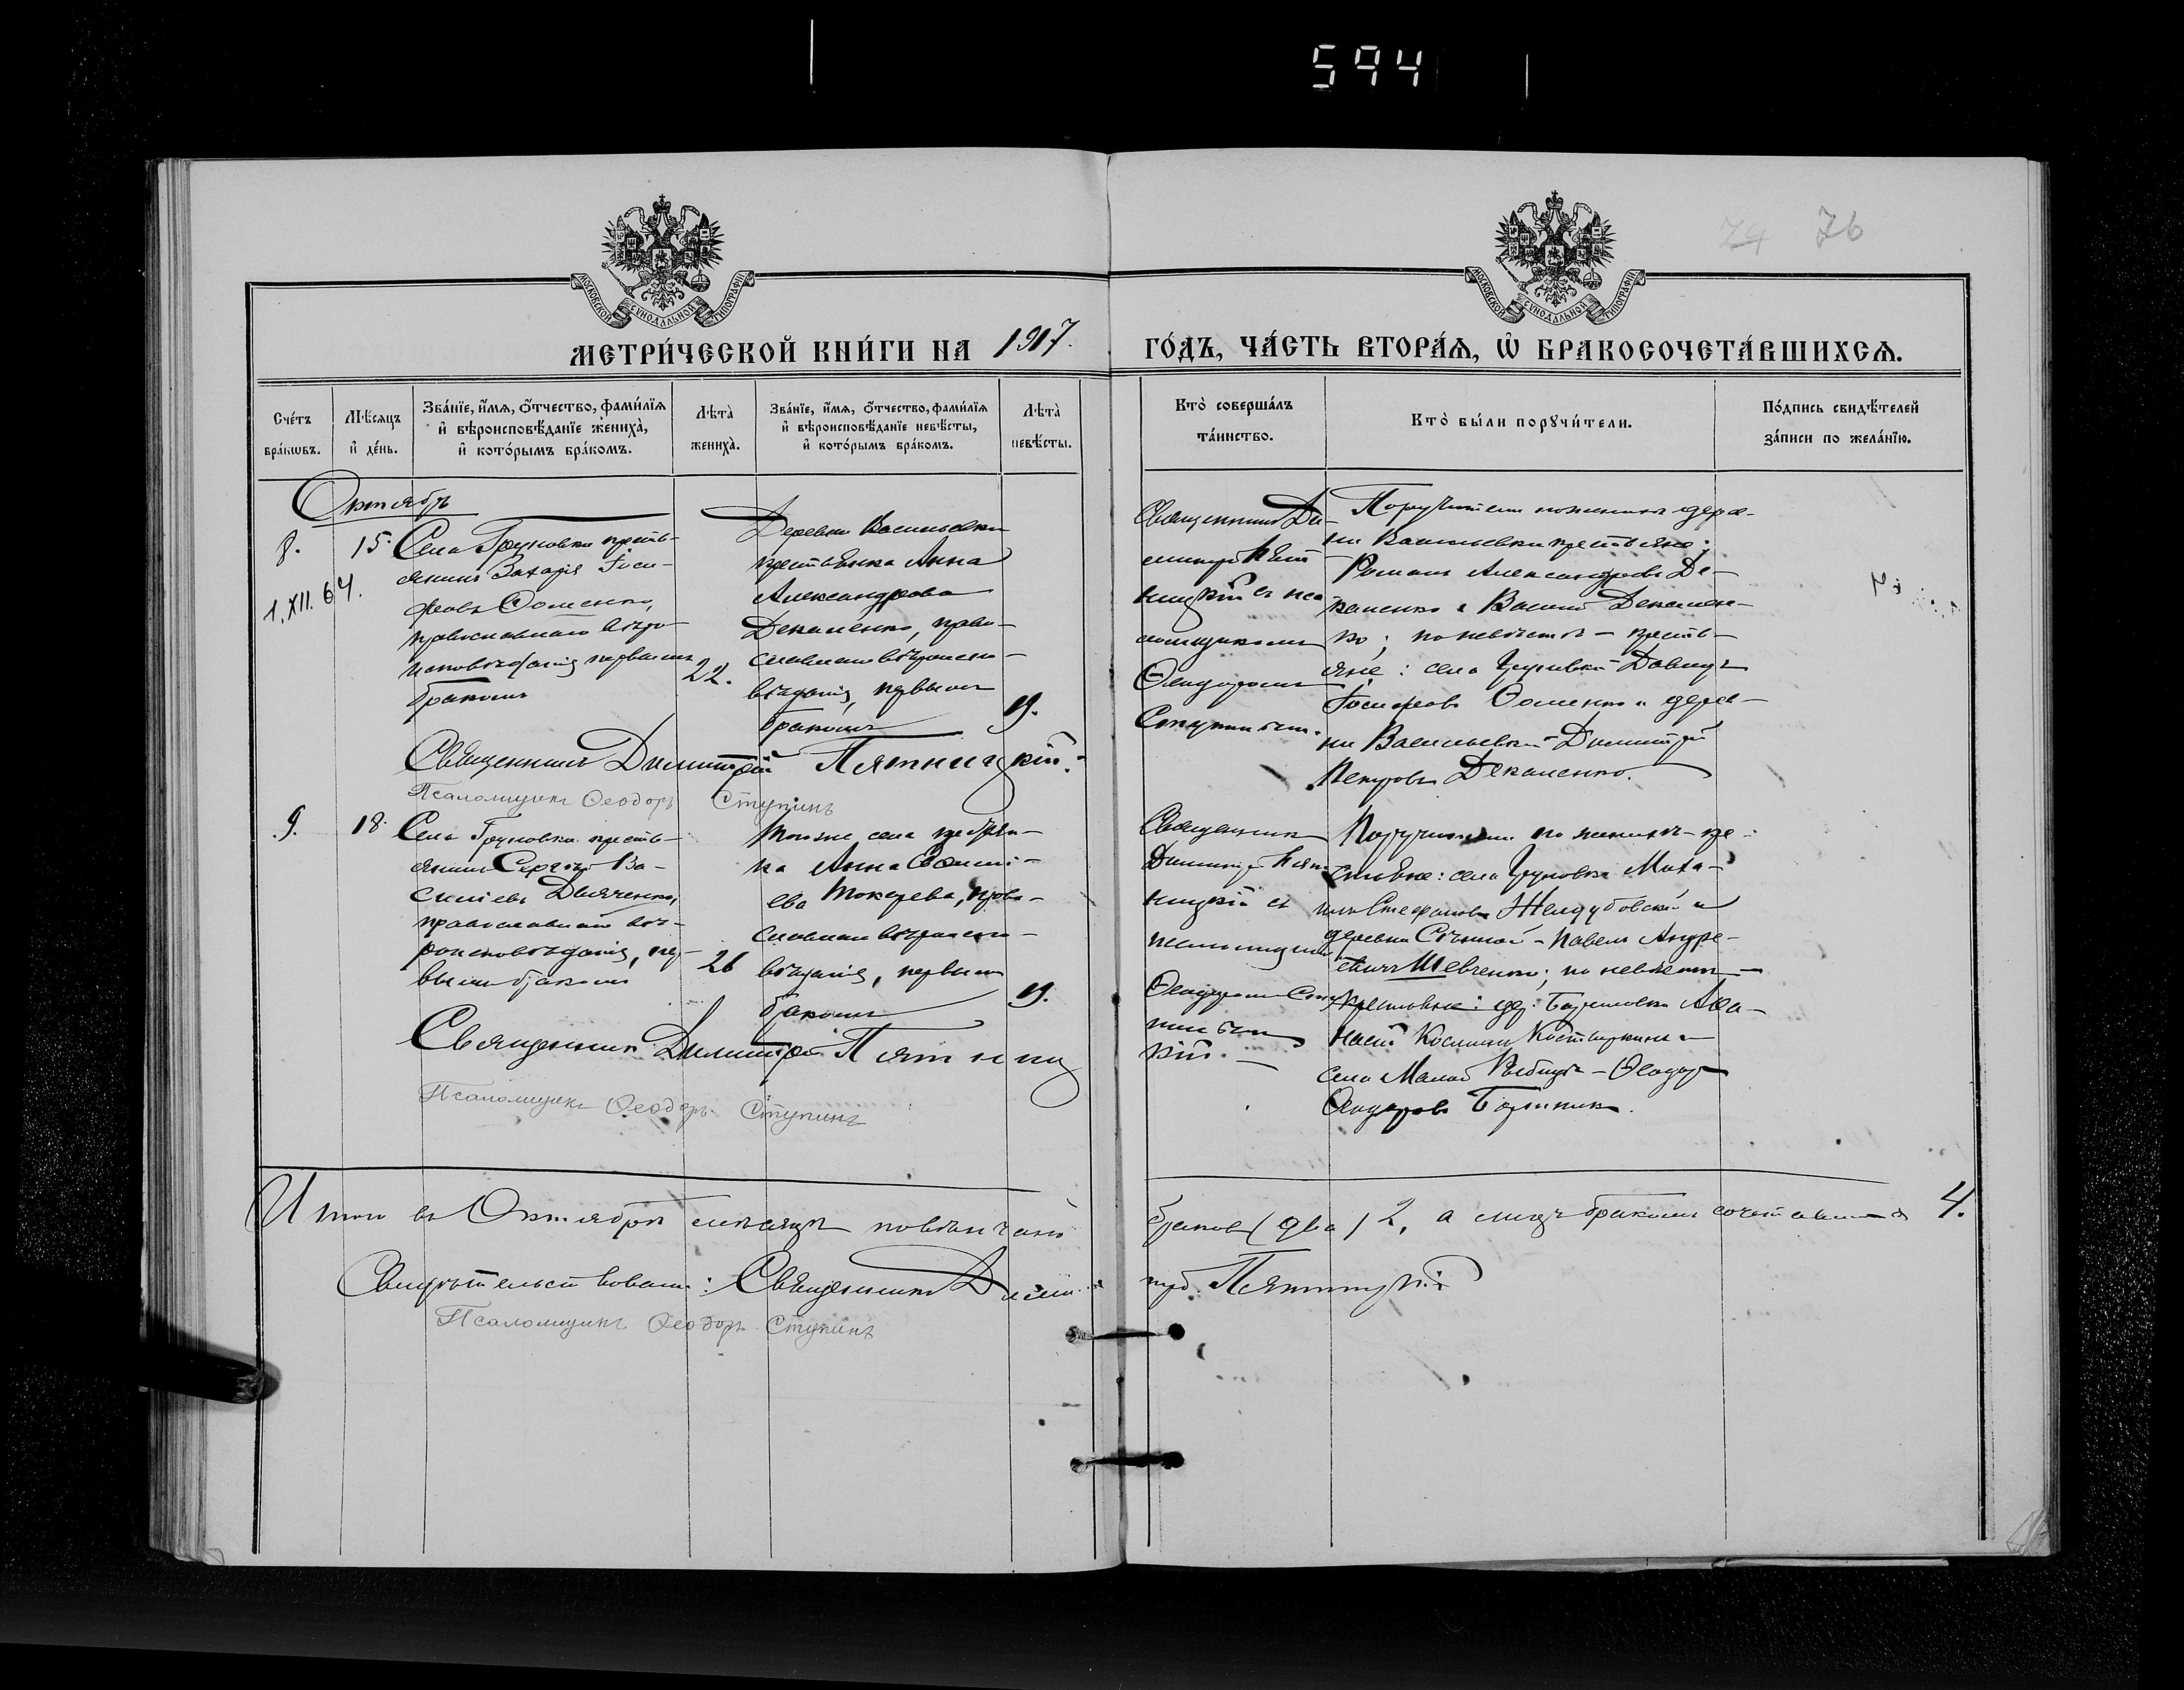 594
74 76
МОСКОВСКОЙ СУНОДАЛЬНОЙ ТИПОГРАФІИ
МОСКОВСКОЙ СУНОДАЛЬНОЙ ТИПОГРАФІИ
МЕТРИ́ЧЕСКОЙ КНИ́ГИ НА 1917.
ГО́ДЪ, ЧА́СТЬ ВТОРА́Ѧ, Ѡ҆ БРАКОСОЧЕТА́ВШИХСѦ.
Сче́тъ бра́кѡвъ.
Мѣ́сяцъ и҆ де́нь.
Зва́нїе, и҆́мѧ, о҆́тчество, фами́лїѧ и҆ вѣроисповѣ́данїе жениха̀, и҆ кото́рымъ бра́комъ.
Лѣта̀ жениха̀.
Зва́нїе, и҆́мѧ, о҆́тчество, фами́лїѧ и҆ вѣроисповѣ́данїе невѣ́сты, и҆ кото́рымъ бра́комъ.
Лѣта̀ невѣ́сты.
Кто̀ соверша́лъ та́инство.
Кто̀ бы́ли порꙋчи́тели.
По́дпись свидѣ́телей за́писи по жела́нїю.
Октябрь
8.
1.XII.64.
15.
Села Груновки кресть-
янинъ Захарія Іоси-
фовъ Ѳоменко,
православнаго вѣро-
исповѣданія, первымъ
бракомъ
22.
Деревни Васильевки
крестьянка Анна
Александрова
Декаленко, право-
славнаго вѣроиспо-
вѣданія, первымъ
бракомъ
19.
Священникъ Ди-
митрій Пят-
ницкій съ пса-
ломщикомъ
Ѳеодоромъ
Ступинымъ.
Поручители по жениху: дерев-
ни Васильевки крестьяне:
Романъ Александровъ Де-
каленко и Василій Декален-
ко; по невѣстѣ - кресть-
яне: села Груновки Давидъ
Іосифовъ Ѳоменко и дерев-
ни Васильевки - Димитрій
Петровъ Декаленко.
Священникъ Димитрій Пятницкій.
Псаломщикъ Ѳеодоръ Ступинъ
9.
18.
Села Груновки кресть-
янинъ Сергѣй Ва-
сильевъ Дьяченко,
православнаго вѣ-
роисповѣданія, пер-
вымъ бракомъ
26
Того же села крестьян-
ка Анна
ева Токарева, право-
славнаго вѣроиспо-
вѣданія, первымъ
бракомъ
19.
Священникъ
Димитрій Пят-
ницкій съ
псаломщикомъ
Ѳеодоромъ Сту-
пинымъ
Поручители по жениху - кре-
стьяне: села Груновки Миха-
илъ Стефановъ и
деревни Степной - Павелъ Андре-
евичъ Шевченко; по невѣстѣ -
крестьяне: дер. Аѳа-
насій Косминъ и
села Малой Рыбицы - Ѳеодоръ
Ѳеодоровъ
Священникъ Димитрій Пятниц
кій.
Псаломщикъ Ѳеодоръ Ступинъ
Итого въ Октябрѣ мѣсяцѣ повѣнчано
браковъ (два) 2, а лицъ бракомъ сочетавшихся 4.
Свидѣтельствовали: Священникъ Димитрій Пятницкій
Псаломщикъ Ѳеодоръ Ступинъ